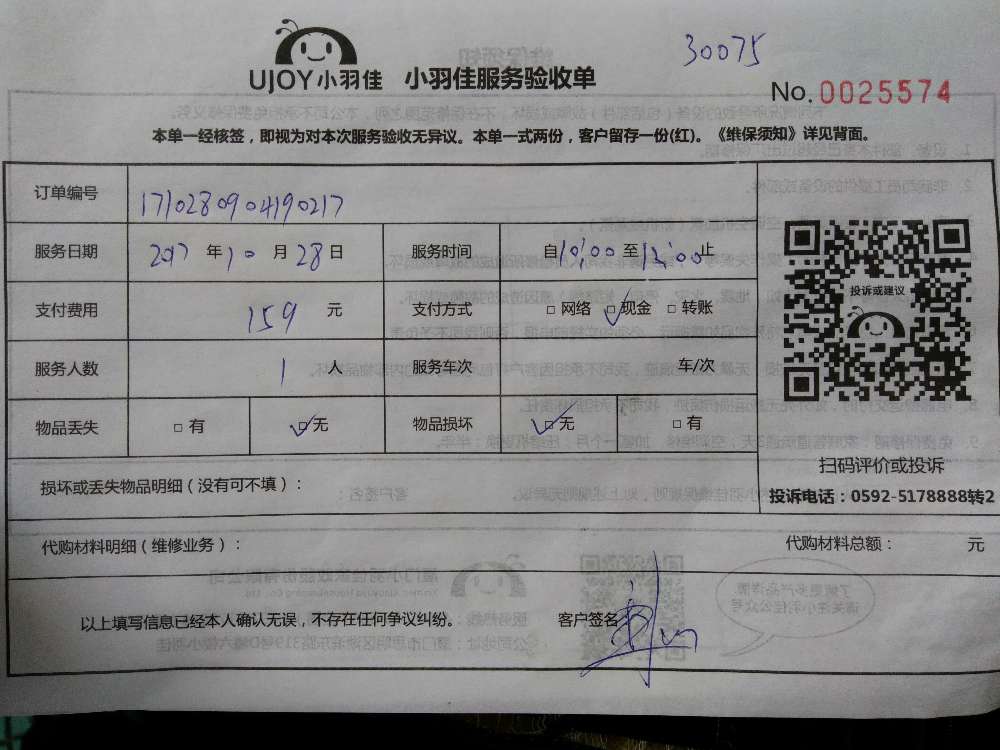 30075
UJOY小羽佳 小羽佳服务验收单
No. 0025574
本单一经核签，即视为对本次服务验收无异议。本单一式两份，客户留存一份(红)。《维保须知》详见背面。
订单编号 1710280904190217
服务日期 2017 年 10 月 28 日 服务时间 自 10:00 至 12:00 止
支付费用 159 元 支付方式 □ 网络 □ 现金 □ 转账
服务人数 1 人 服务车次 车/次
物品丢失 □ 有 □ 无 物品损坏 □ 无 □ 有
投诉或建议
扫码评价或投诉
投诉电话：0592-5178888转2
损坏或丢失物品明细（没有可不填）：
代购材料明细（维修业务）： 代购材料总额： 元
以上填写信息已经本人确认无误，不存在任何争议纠纷。 客户签名